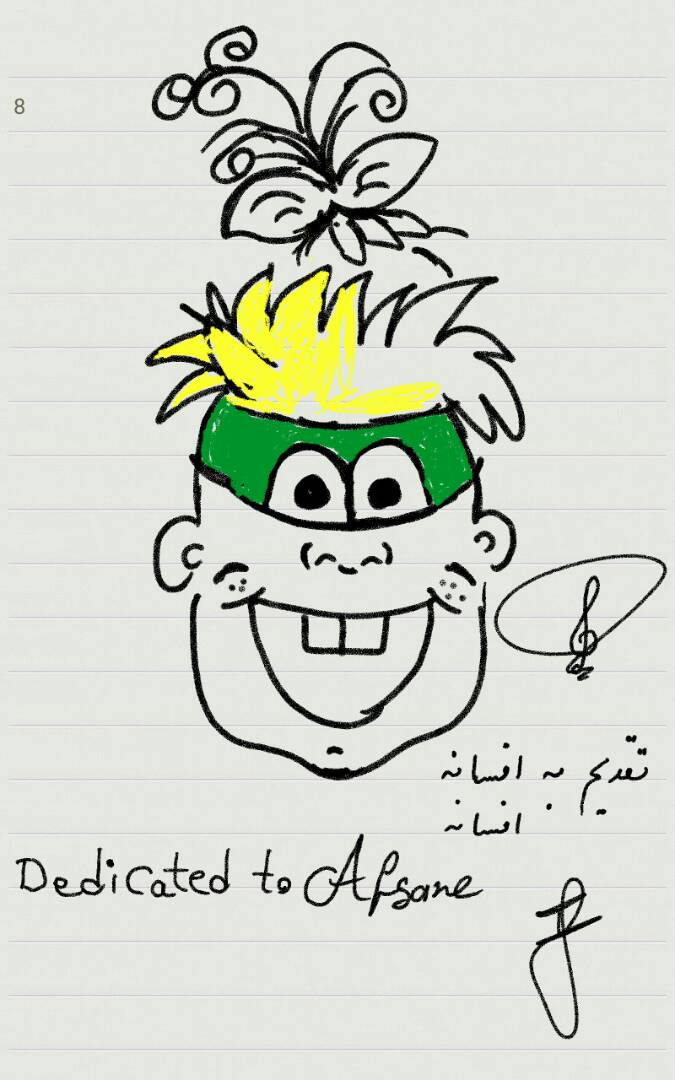 8
تقدیم به افسانه
افسانه
Dedicated to Afsane